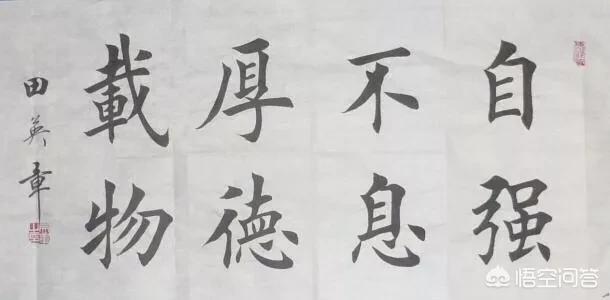 自强
不息
厚德
載物
田英章
悟空问答